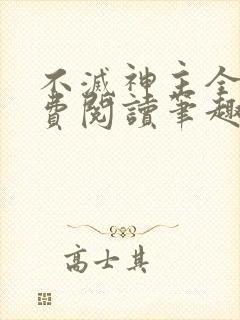 不滅神主全
費閱讀筆趣
高士其